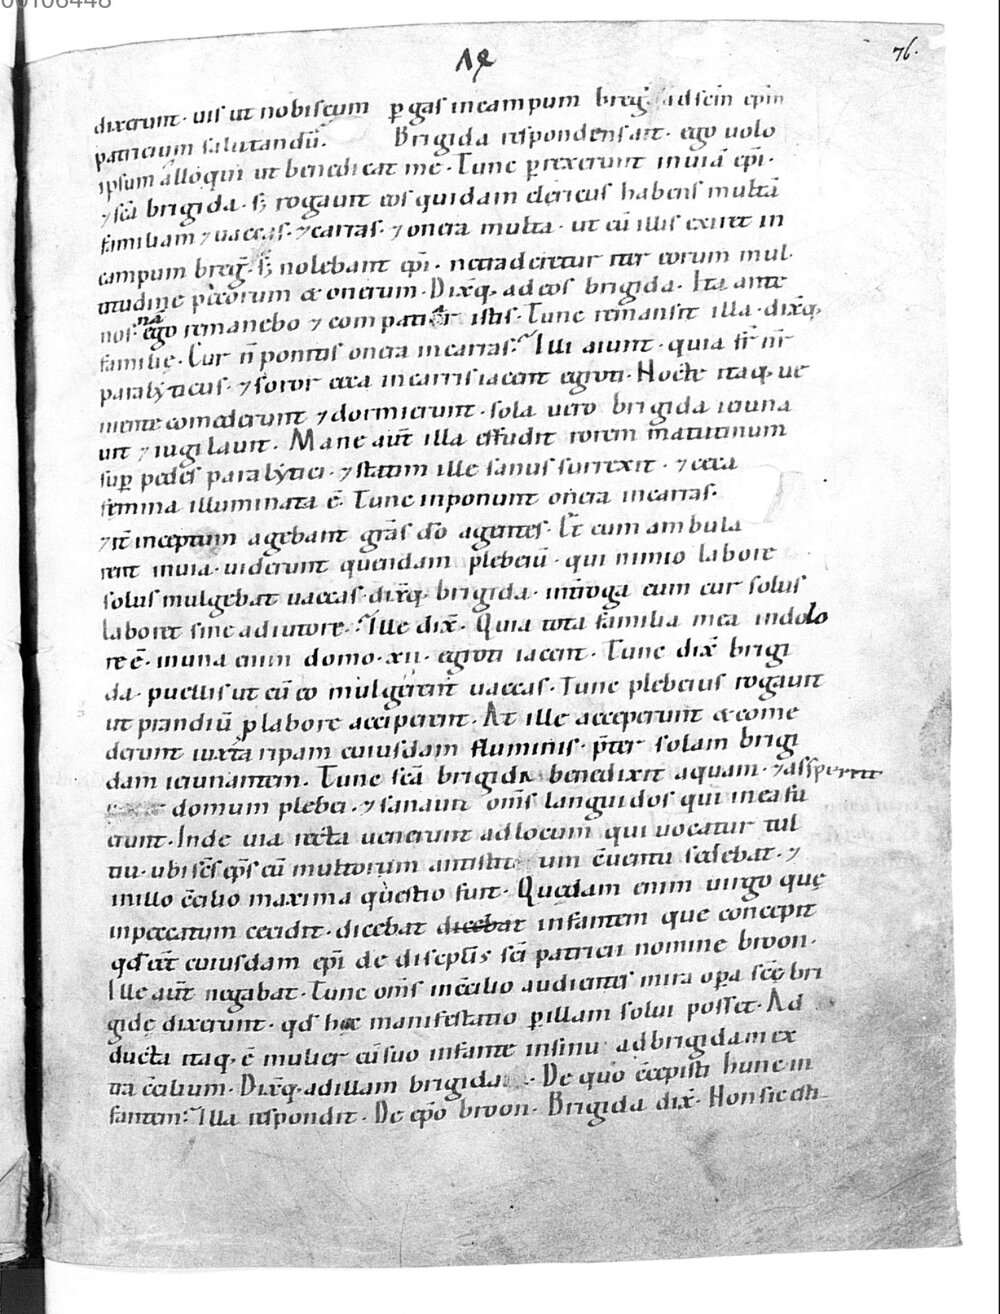 00106448
76.
dixerunt. uis ut nobiscum p̱gas incampum breg̅. adscm̅ ep̅m
patricium salutandū. Brigida respondens ait. ego uolo
ipsum alloqui ut benedicat me. Tunc p̱rexerunt inuiā ep̅i.
⁊ scā brigida. s; rogauit eos quidam clericus habens multā
familiam ⁊ uaccas. ⁊ carras. ⁊ onera multa. ut cū illis exiret in
campum breg̅. s; nolebant ep̅i. ne tarderetur iter eorum mul
titudine pecorum & onerum. Dixitq. ad eos brigida. Ita ante
nos. ego na remanebo ⁊ compatiar istis. Tunc remansit illa. dixitq.
familię. Cur n̄ ponitis onera incarras. Illi aiunt. quia fr̅ nr̅
paralyticus. ⁊ soror ceca incarris iacent egroti. Nocte itaq. ue
niente comederunt ⁊ dormierunt. sola uero brigida ieiuna
uit ⁊ uigilauit. Mane aūt illa effudit rorem matutinum
sup̱ pedes paralytici. ⁊ statim ille sanus surrexit. ⁊ ceca
femina illuminata ē. Tunc inponunt onera incarras.
⁊ it̅ inceptum agebant grās do̅ agentes. Et cum ambula
rent inuia. uiderunt quendam plebeiū. qui nimio labore
solus mulgebat uaccas. dixitq. brigida. int̅roga eum cur solus
laboret sine adiutore. Ille dix̅. Quia tota familia mea indolo
re ē. inuna enim domo. xii. egroti iacent. Tunc dix̅ brigi
da. puellis ut cū eo mulgerent uaccas. Tunc plebeius rogauit
ut prandiū p̱ labore acciperent. At ille acceperunt & come
derunt iuxta ripam cuiusdam fluminis. p̅ter solam brigi
dam ieiunantem. Tunc scā brigida benedixit aquam. ⁊ asspersit
domum plebei. ⁊ sanauit om̅s languidos qui in ea fu
erunt. Inde uia recta uenerunt ad locum qui uocatur tail
tiu. ubi sc̅s ep̅s cū multorum antistitum c̅uentu sedebat. ⁊
inillo c̅cilio maxima questio fuit. Quedam enim uirgo quę
inpeccatum cecidit. dicebat dicebat infantem que concepit
qd̅ eēt cuiusdam ep̅i de discipulis sc̅i patricii nomine broon.
Ille aūt negabat. Tunc om̅s inc̅cilio audientes mira op̱a sc̅ę bri
gidę dixerunt. qd̅ hęc manifestatio p̱ illam solui posset. Ad
ducta itaq. ē mulier cū suo infante insinu ad brigidam ex
tra c̅cilium. Dixitq. adillam brigida. De quo c̅cepisti hunc in
fantem. Illa respondit. De ep̅o broon. Brigida dix̅. Non sic est